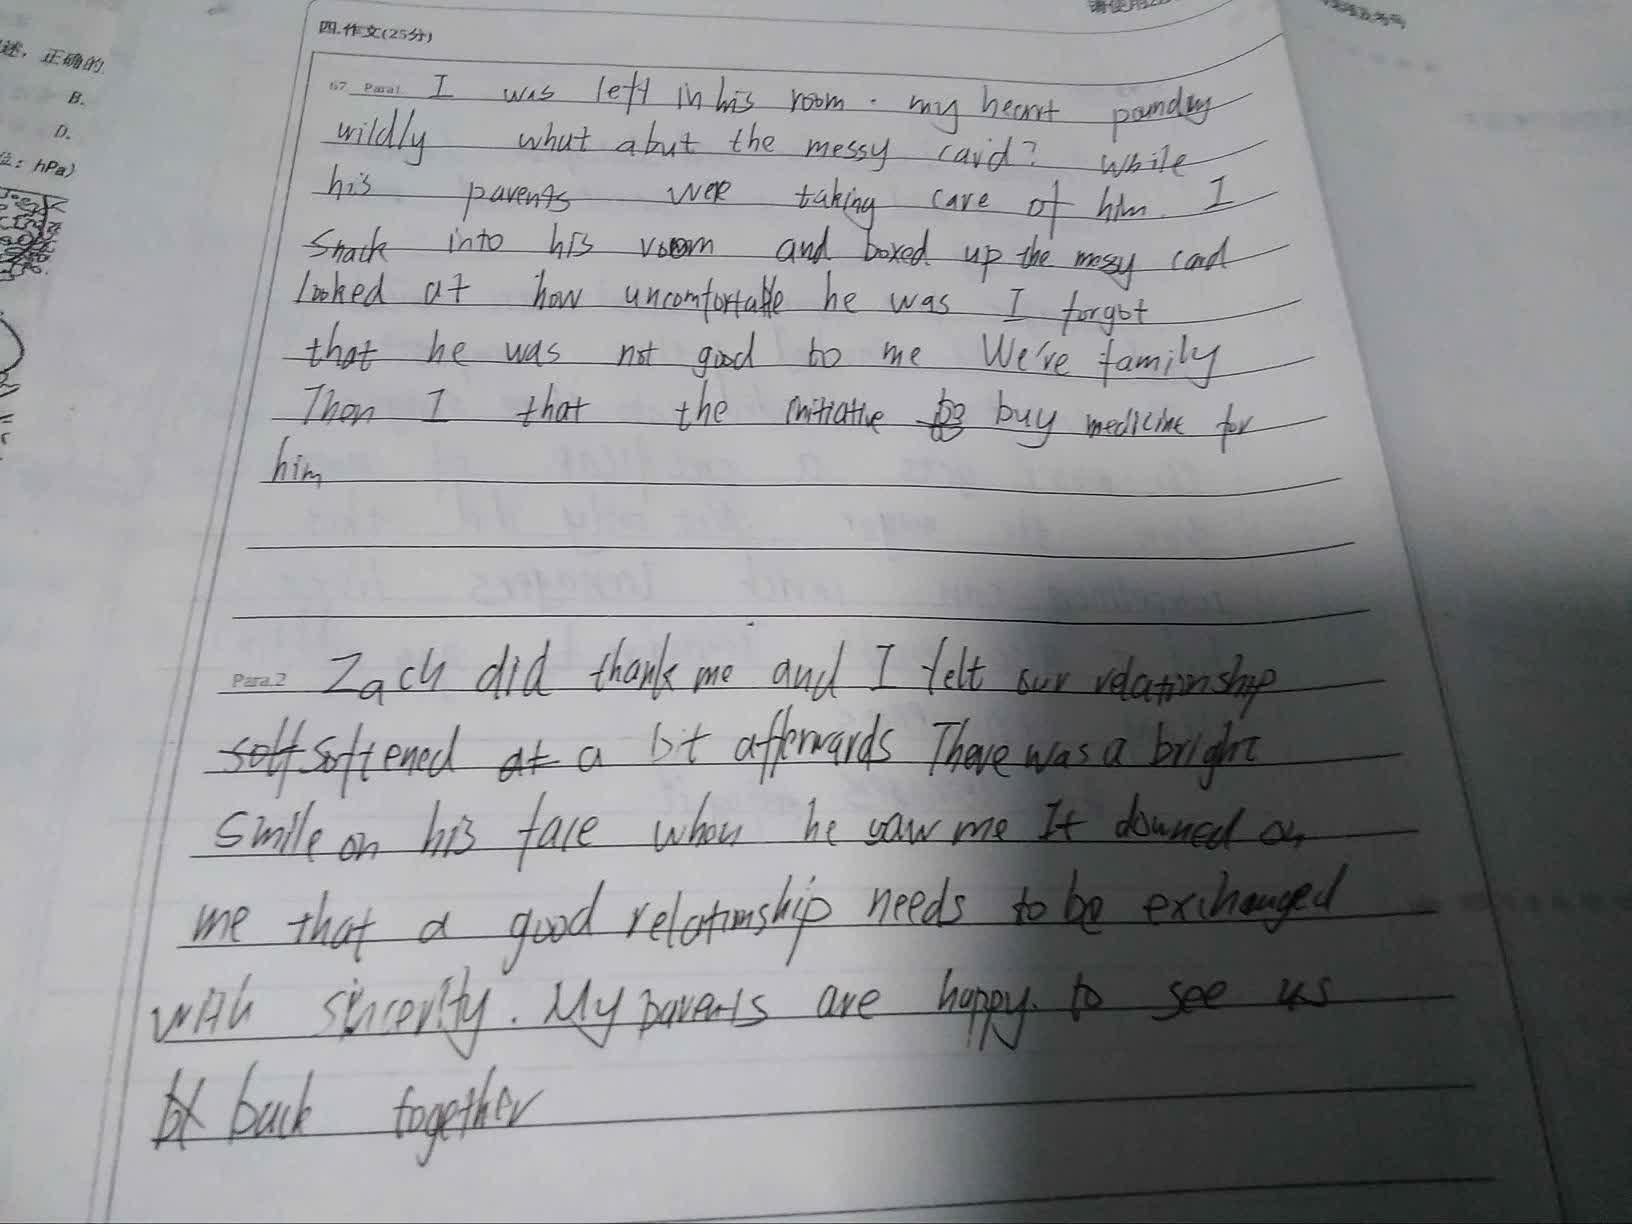 述，正确的
B.
D.
位：hPa)
请使用2
四.作文(25分)
67 Para1 I was left in his room . my heart pounding
wildly what abut the messy card? while
his parents were taking care of him. I
snack into his room and boxed up the messy card
looked at how uncomfortable he was I forgot
that he was not good to me We're family
Then I that the initiative to buy medicine for
him
Para.2 Zach did thank me and I felt our relationship
soft softened at a bit afterwards There was a bright
smile on his face when he saw me It downed on
me that a good relationship needs to be exchanged
with sincerity. My parents are happy. to see us
bt back together